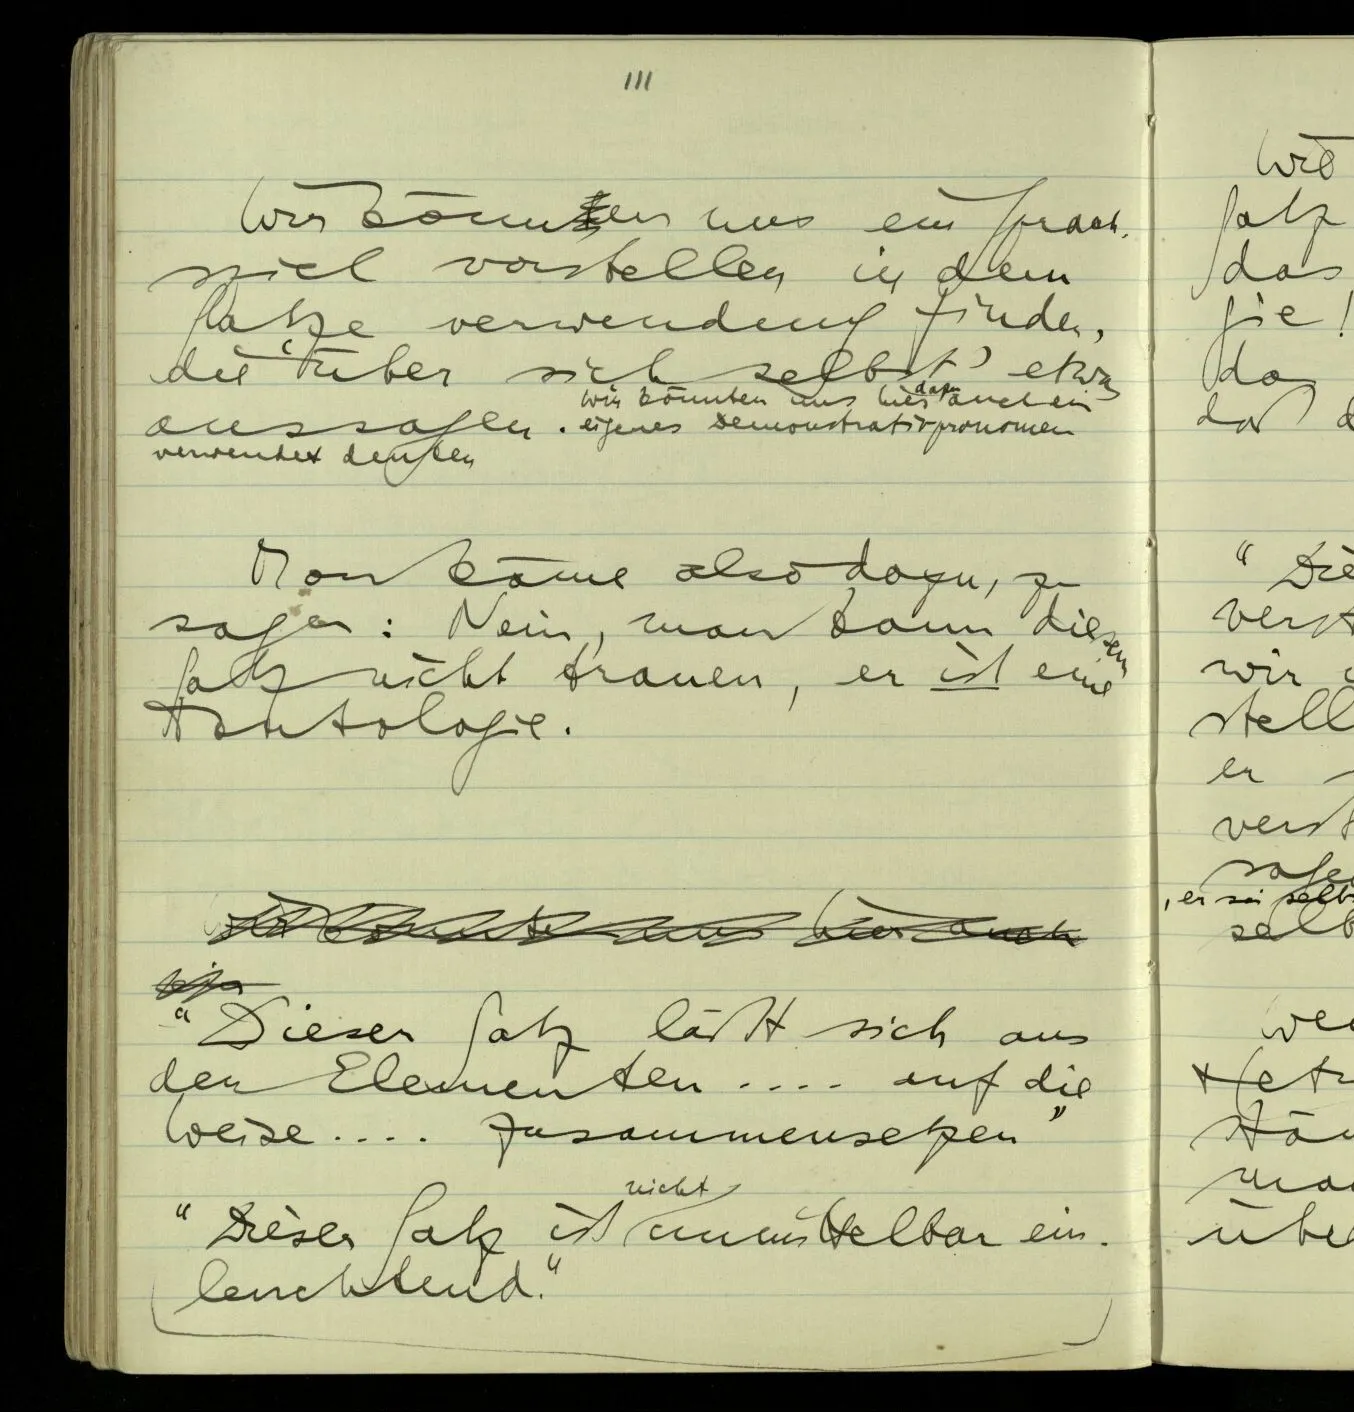 111
Wir könnten uns ein Sprach-
spiel vorstellen in dem
Sätze verwendung finden,
die 'über sich selbst' etwas
aussagen. Wir könnten uns hier dazu auch ein
eigenes Demonstrativpronomen
verwendet denken
Man käme also dazu, zu
sagen: Nein, man kann diesem
Satz nicht trauen, er ist eine
Tautologie.
Wir könnten uns hier auch
"Dieser Satz läßt sich aus
den Elementen .... auf die
Weise .... zusammensetzen"
"Dieser Satz ist nicht unmittelbar ein-
leuchtend."
Satz
das
sie!
daß d
"Die
verst
wir
stell
er
verst
sage
, er sei selb
selb
we
übe